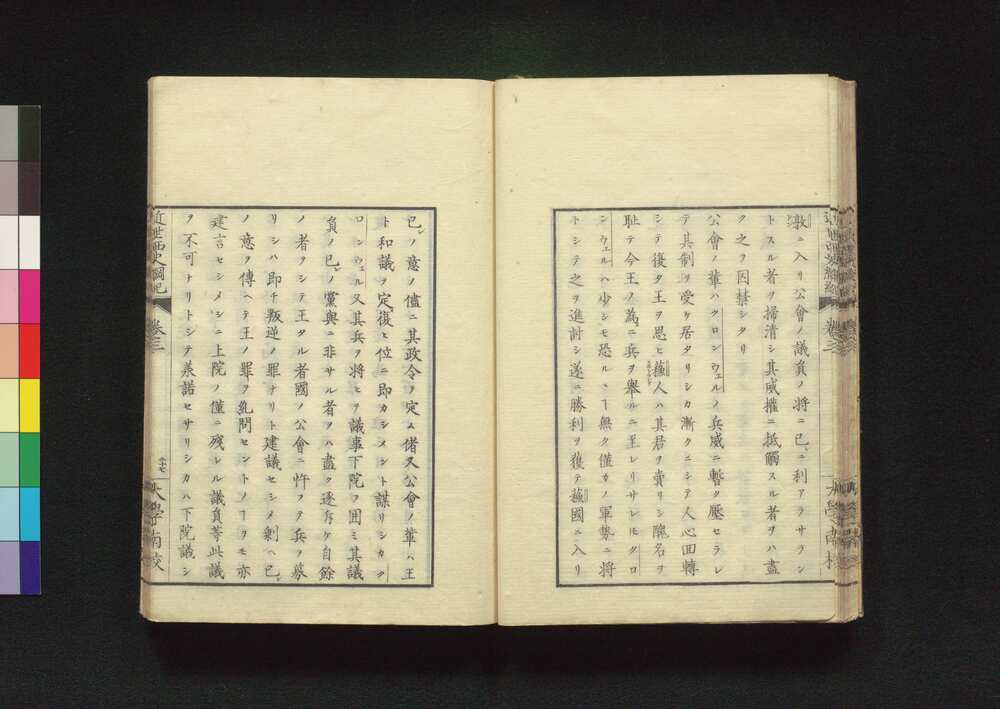 敦ニ入リ公會ノ議員ノ將ニ己ニ利アラサラン
トスル者ヲ掃清シ其威權ニ抵觸スル者ヲハ盡
ク之ヲ囚禁シタリ
公會ノ輩ハクロンウェルノ兵威ニ暫ク壓セラレ
テ其制ヲ受ケ居タリシカ漸クニシテ人心回轉
シテ復タ王ヲ思ヒ蘓人ハ其居ヲ賣リシ醜名ヲ
耻テ今王ノ為ニ兵ヲ舉ルニ至レリサレ𪜈クロ
ンウェルハ少シモ恐ルヽヿ無ク僅カノ軍勢ニ將
トシテ之ヲ進討シ遂ニ勝利ヲ獲テ蘓國ニ入リ
己レノ意ノ儘ニ其政令ヲ定ム偖又公會ノ輩ハ王
ト和議ヲ定メ復ヒ位ニ即カシメント謀リシカク
ロンウェル又其兵ヲ將ヒテ議事下院ヲ囲ミ其議
員ノ己レノ黨與ニ非サル者ヲハ盡ク逐斥ケ自餘
ノ者ヲシテ王タル者國ノ公會ニ忤ヲテ兵ヲ募
リシハ即チ叛逆ノ罪ナリト建議セシメ剰ヘ己レ
ノ意ヲ傳ヘテ王ノ罪ヲ糺問セントノヿヲモ亦
建言セシメシニ上院ノ僅ニ残レル議員等此議
ヲ不可トリトシテ蒸諾セサリシカハ下院議シ
近世西史綱紀 卷三 二十七 大學南校